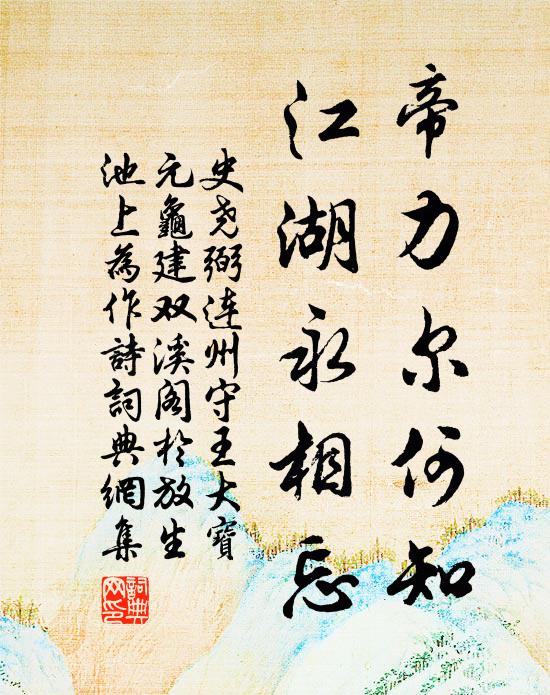 帝力尔何知
江湖永相忘
史尧弼连州守王大寶
元龜建双溪阁於放生
池上為作詩詞典網集